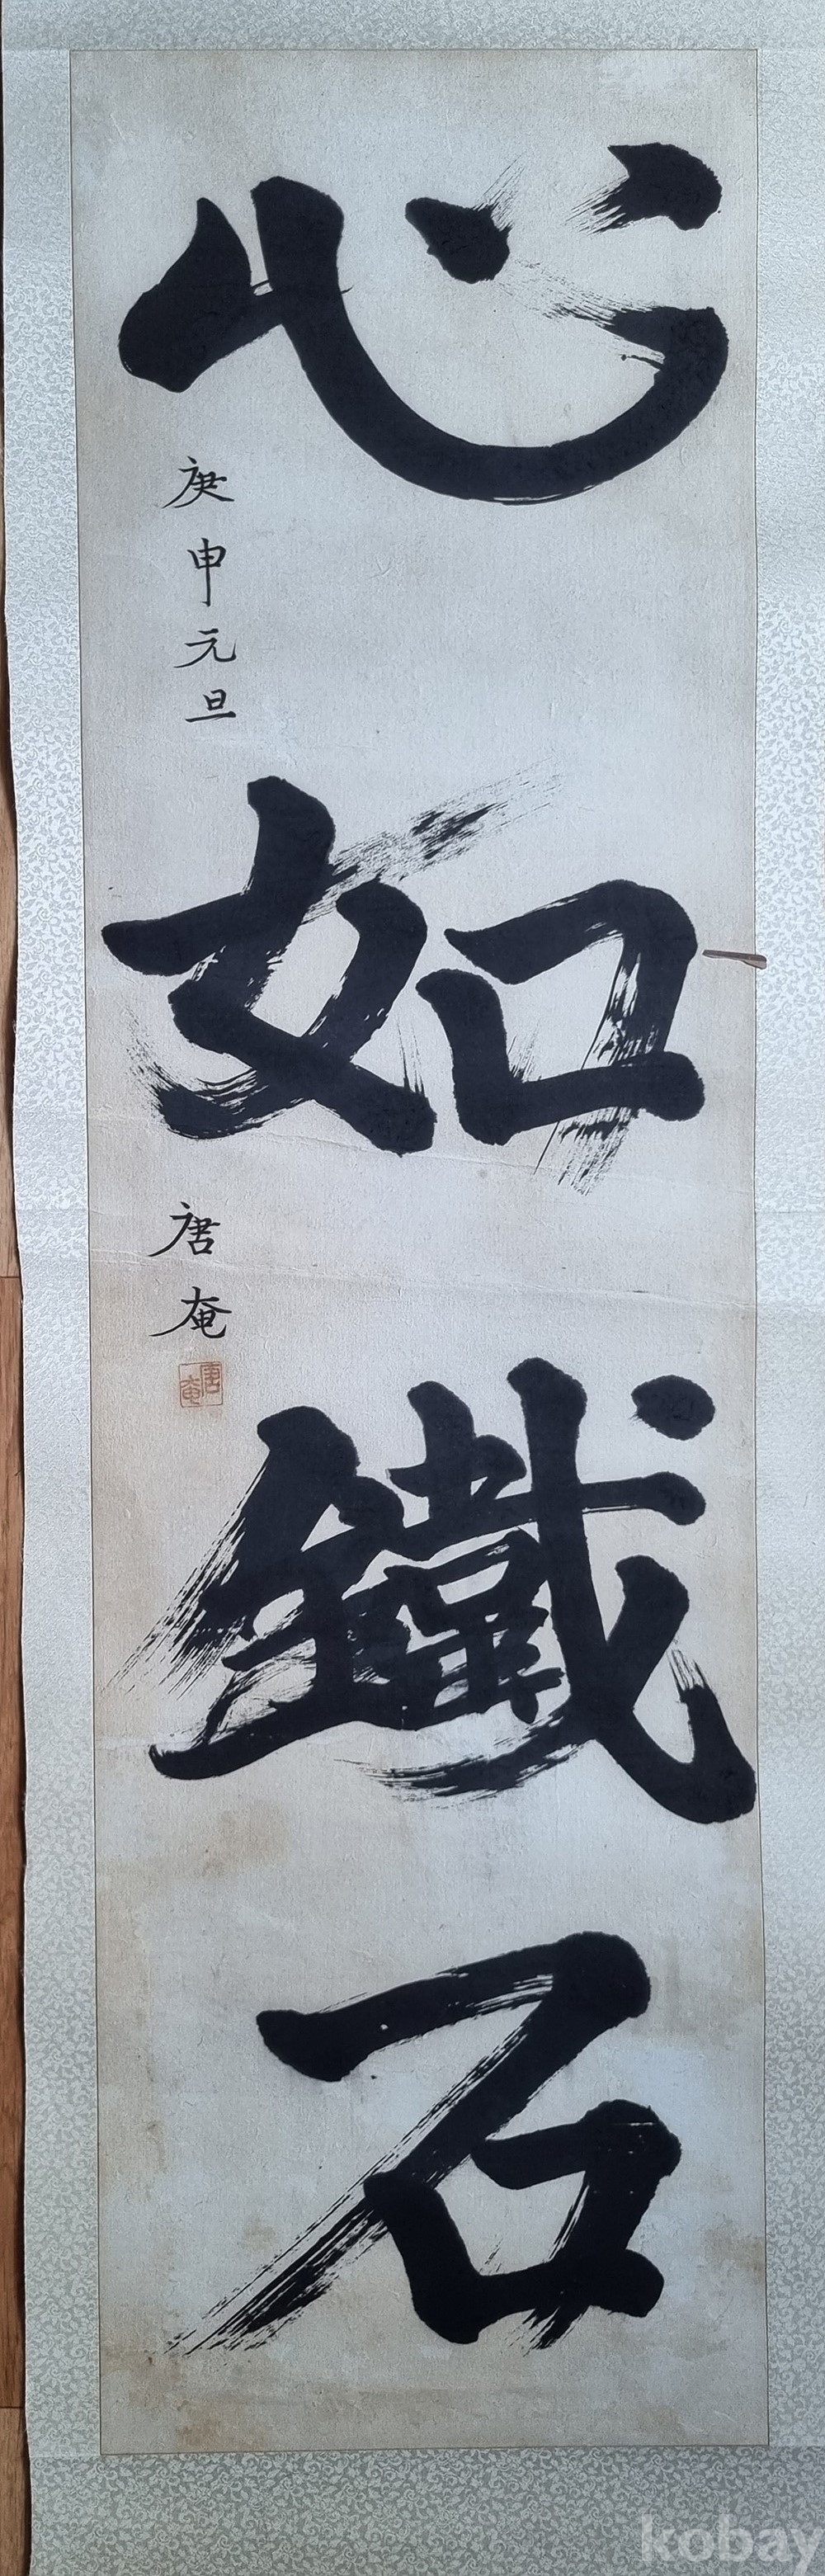 心如鐵石
庚申元旦
唐奄
唐奄
kobay